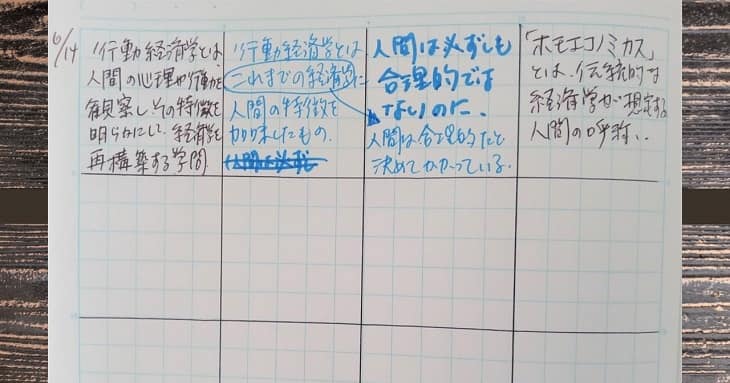 6/14
行動経済学とは、
人間の心理や行動を
観察し、その特徴を
明らかにし、経済学を
再構築する学問
行動経済学とは
これまでの経済学に
人間の特徴を
加味したもの.
人間は必ずし
人間は必ずしも
合理的では
ないのに、
人間は合理的だと
決めてかかっている.
「ホモエコノミカス」
とは、伝統的な
経済学が想定する
人間の呼称、